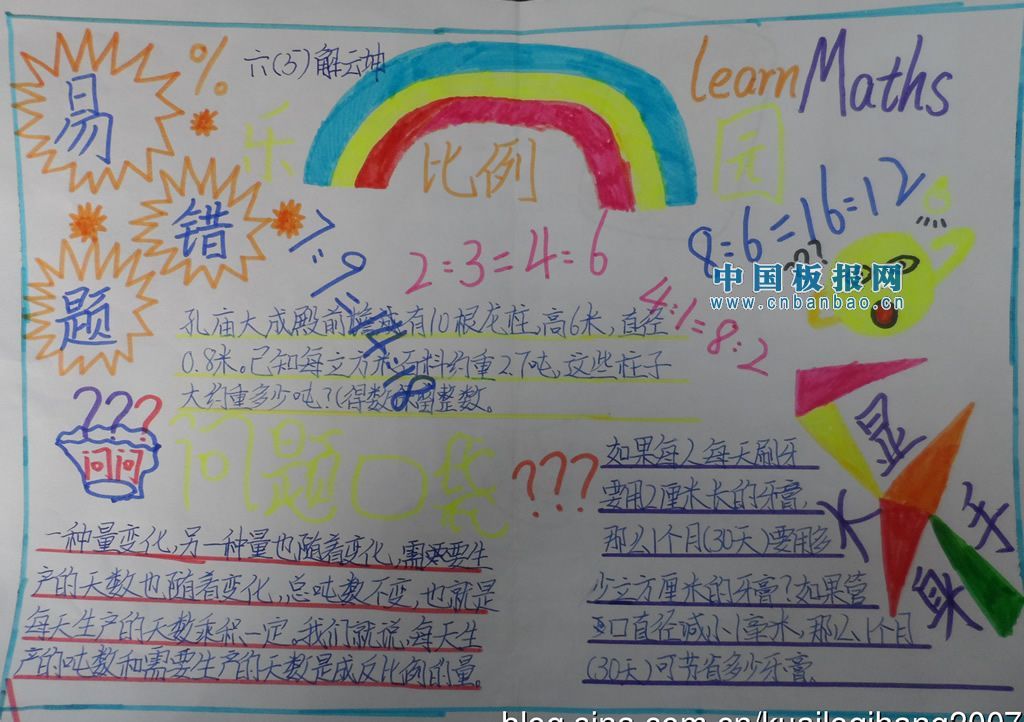 易
错
题
%
六(5)解云坤
乐
比例
园
learn Maths
7:9=14:18
2:3=4:6
8:6=16:12
4:1=8:2
??
中国板报网
www.cnbanbao.cn
孔庙大成殿前 有10根龙柱,高6米,直径
0.8米。已知每立方米石料约重2.7吨,这些柱子
大约重多少吨?(得数保留整数。
???
问问
问题口袋
???
一种量变化,另一种量也随着变化,需要生
产的天数也随着变化,总吨数不变,也就是
每天生产的天数乘积一定。我们就说,每天生
产的吨数和需要生产的天数是成反比例的量。
大显
身手
如果每人每天刷牙
要用2厘米长的牙膏,
那么1个月(30天)要用多
少立方厘米的牙膏?如果管
口直径减小1毫米,那么1个月
(30天)可节省多少牙膏.
blog.sina.com.cn/kuaileqihang2007